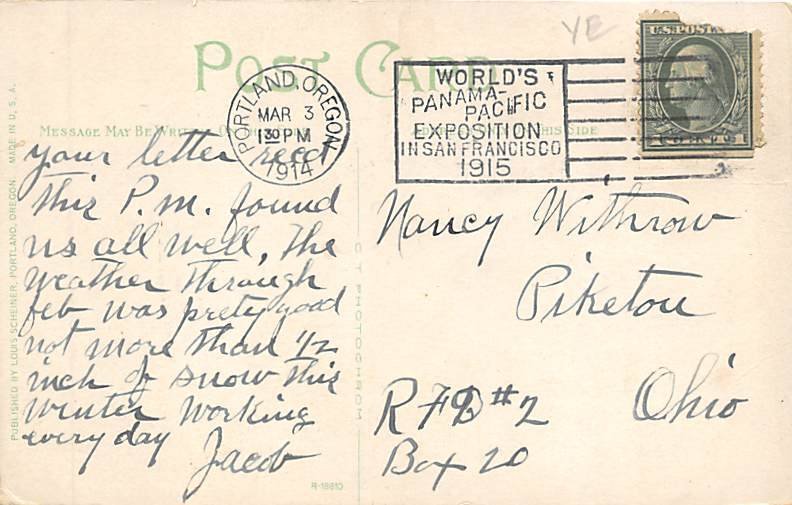 YE
POST CARD
U.S. POS
1 CENTS 1
PORTLAND, OREGON
MAR 3
130 PM
1914
WORLD'S
PANAMA-
PACIFIC
EXPOSITION
IN SAN FRANCISCO
1915
MESSAGE MAY BE
SIDE
your letter recd
this P.m. found
us all well, The
weather Through
feb was prety good
not more Than 1/2
inch of snow This
winter working
every day
Jacob
Nancy Withrow
Piketon
Ohio
RFD #2
Box 20
PUBLISHED BY LOUIS SCHEINER, PORTLAND, OREGON. MADE IN U.S.A.
R-18610